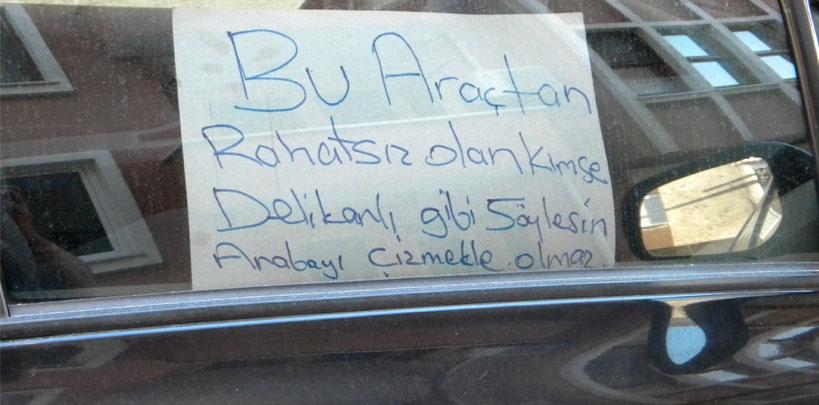 Bu Araçtan
Rahatsız olan kimse
Delikanlı gibi Söylesin
Arabayı Çizmekle olmaz.